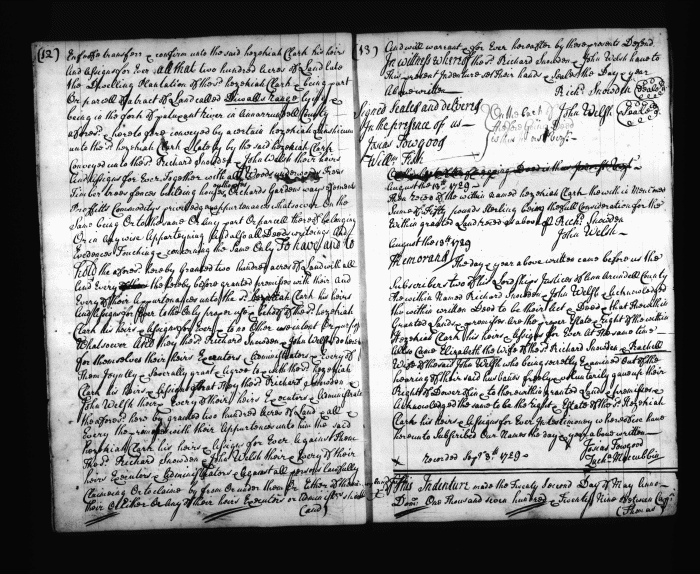 (12)
transferr & confirm unto the said hezekiah Clark his heirs
And assigns for Ever all that two hundred acres of Land late
the Dwelling Plantation of the sd hezekiah Clark & being part
Or parcell of a tract of Land called Duvalls Range lying &
being in the fork of patuxent River in annarundell County
afores. heretofore conveyed by a certain hezekiah
unto the sd hezekiah Clark & lately by the said hezekiah Clark
Conveyed unto the sd Richard Snowden & John Welsh their heirs
And assigns for Ever Together with all Woods underwoods Trees
Timber trees fences building houses Orchards Gardens ways Easements
Proffitts Commoditys priviledges & appurtenances whatsoever On the
Same being Or to the same Or Any part Or parcell thereof belonging
Or in any wise Appertayning And also all Deeds writeings And
Evedences Touching & concerning the Same Only To have and to
hold the afores. hereby granted two hundred acres of Land with all
And Every the hereby before granted premises with their And
Every of their Appurtenances unto the sd hezekiah Clark his heirs
And assigns for Ever to the Only proper use & behoof of the sd hezekiah
Clark his heirs & assigns for Ever & to no Other use intent Or purpose
Whatsoever And they the sd Richard Snowden & John Welsh do hereby
for themselves their heirs Executors & Administrators & Every of
Them Joyntly & Severally grant & agree to & with the sd hezekiah
Clark his heirs & assigns that they the sd Richard Snowden
John Welsh their & Every of their heirs Executors & Administrators
the afores. hereby granted two hundred acres of Land & all
Every the premises with their Appurtenances unto him the said
hezekiah Clark his heirs & assigns for Ever Against them
The sd Richard Snowden & John Welsh their & Every of their
heirs Executors & Administrators & against all persons lawfully
Claimeing Or to claime by from Or under them Or Either of them
their Or Either Or Any of their heirs Executors or Administrators shall
(and)
(13)
And will warrant & for Ever hereafter by these presents Defend
In witness whereof the sd Richard Snowden & John Welsh have to
This present Indenture set their hands & Seales the Day & year
Above written
Richd Snowden Seale
Signed Sealed and delivered
John Welsh Seale
In the presence of us
On the back of
Jonas Towgood
Willm Fish
August the 13th 1729
Then received of the within named hezekiah Clark the within Mentioned
Sume of Fifty pounds Sterling being the full Consideration for the
Within granted Land received as above p Richd Snowden
John Welsh
August the 13th 1729
Memorand The day & year above written came before us the
Subscribers two of his Lordships Justices of Ann Arundell County
The within Named Richard Snowden & John Welsh & acknowledged
the within written Deed to be their Act & Deed & that the within
Granted Land & premises Are the proper Estate & Right of the within
hezekiah Clark his heirs & assigns for Ever At the same time
Also Came Elizabeth the Wife of the sd Richard Snowden & Rachell
Wife of the said John Welsh who being secretly Examined Out of the
hearing of their said husbands freely & voluntarily gave up their
Right of Dower to the within granted Land & premises &
Acknowledged the same to be the right & Estate of the sd hezekiah
Clark his heirs & assigns for Ever In testimony whereof we have
hereunto Subscribed Our Names the day & year above written
Jonas Towgood
Zach. Maccubbin
Recorded Sepr 3d 1729
This Indenture made the Twenty Second Day of May Anno
Dom. One Thousand seven hundred & Twenty Nine Between
(Thomas)